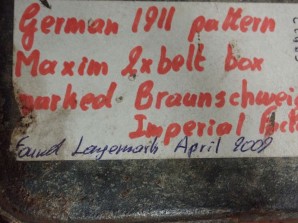 German 1911 pattern
Maxim 2xbelt box
marked Braunschwei
Imperial
Found Langemark April 2002